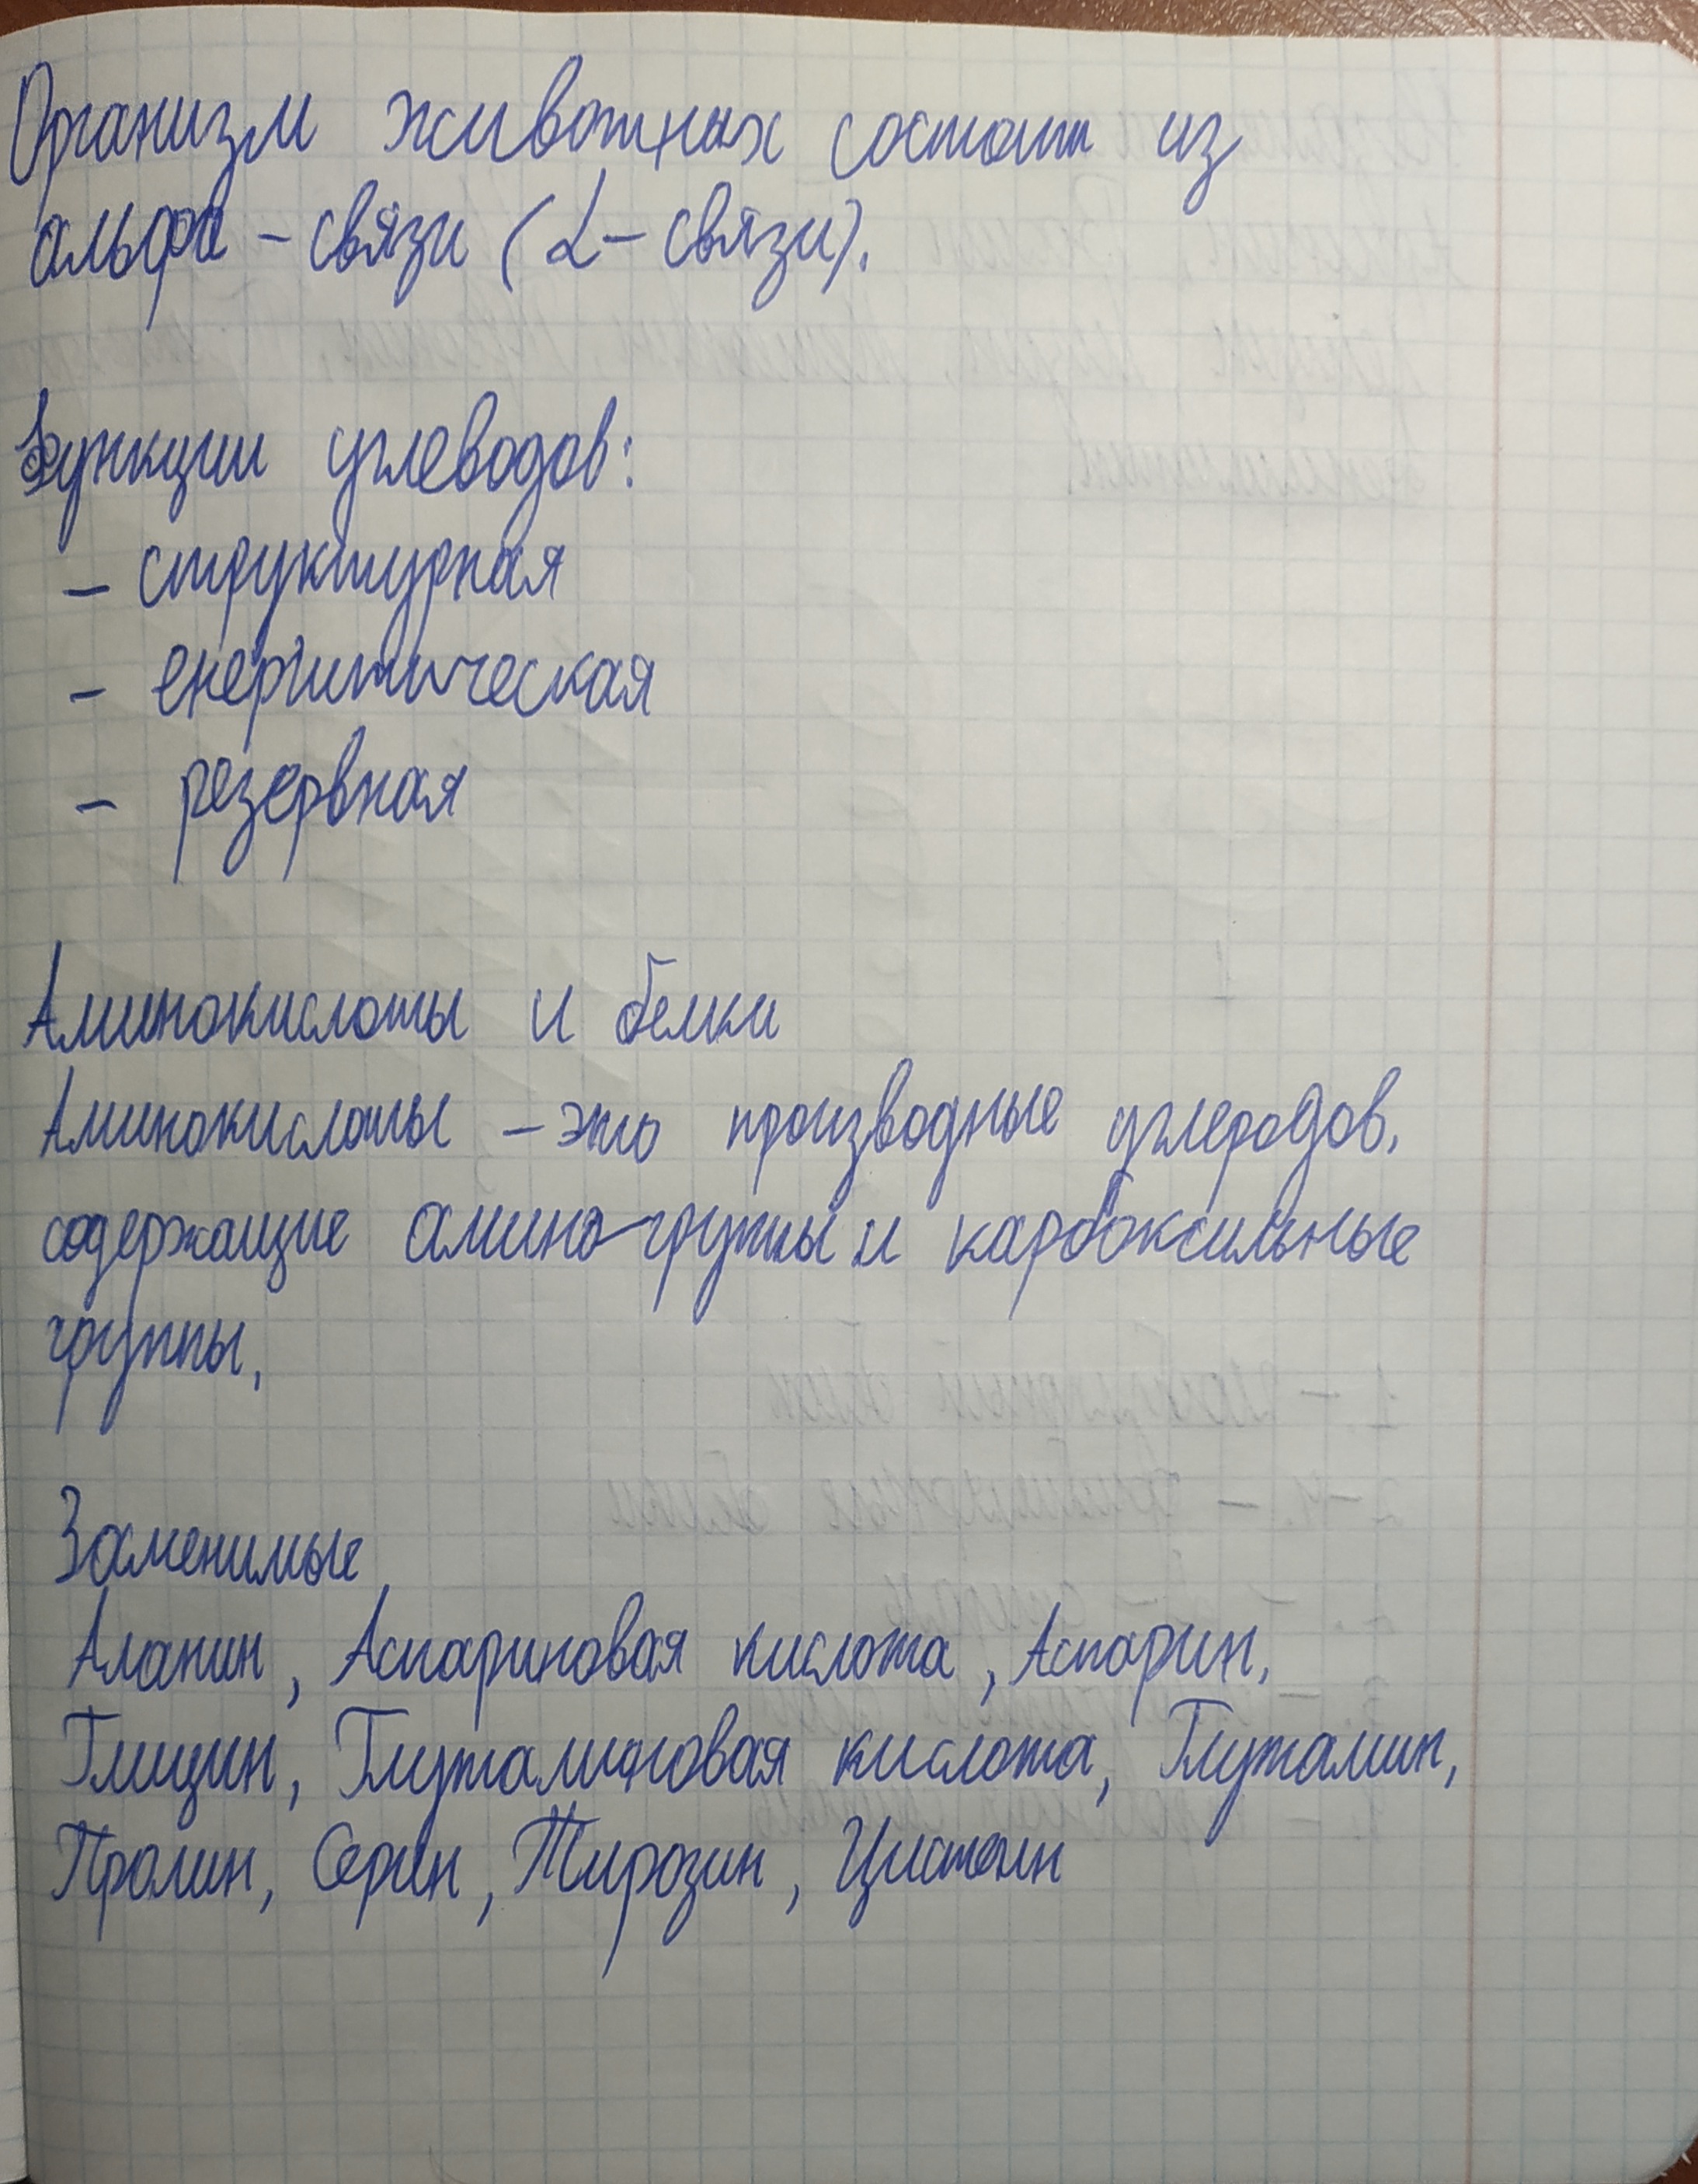 Организм животных состоит из
альфа - связи (α - связи).
Функции углеводов:
- структурная
- енергитическая
- резервная
Аминокислоты и белки
Аминокислоты - это производные углеродов,
содержащие амино-группы и карбоксильные
группы.
Заменимые
Аланин, Аспариновая кислота, Аспарин,
Глицин, Глуталиновая кислота, Глутамин,
Пролин, Серин, Тирозин, Цистеин